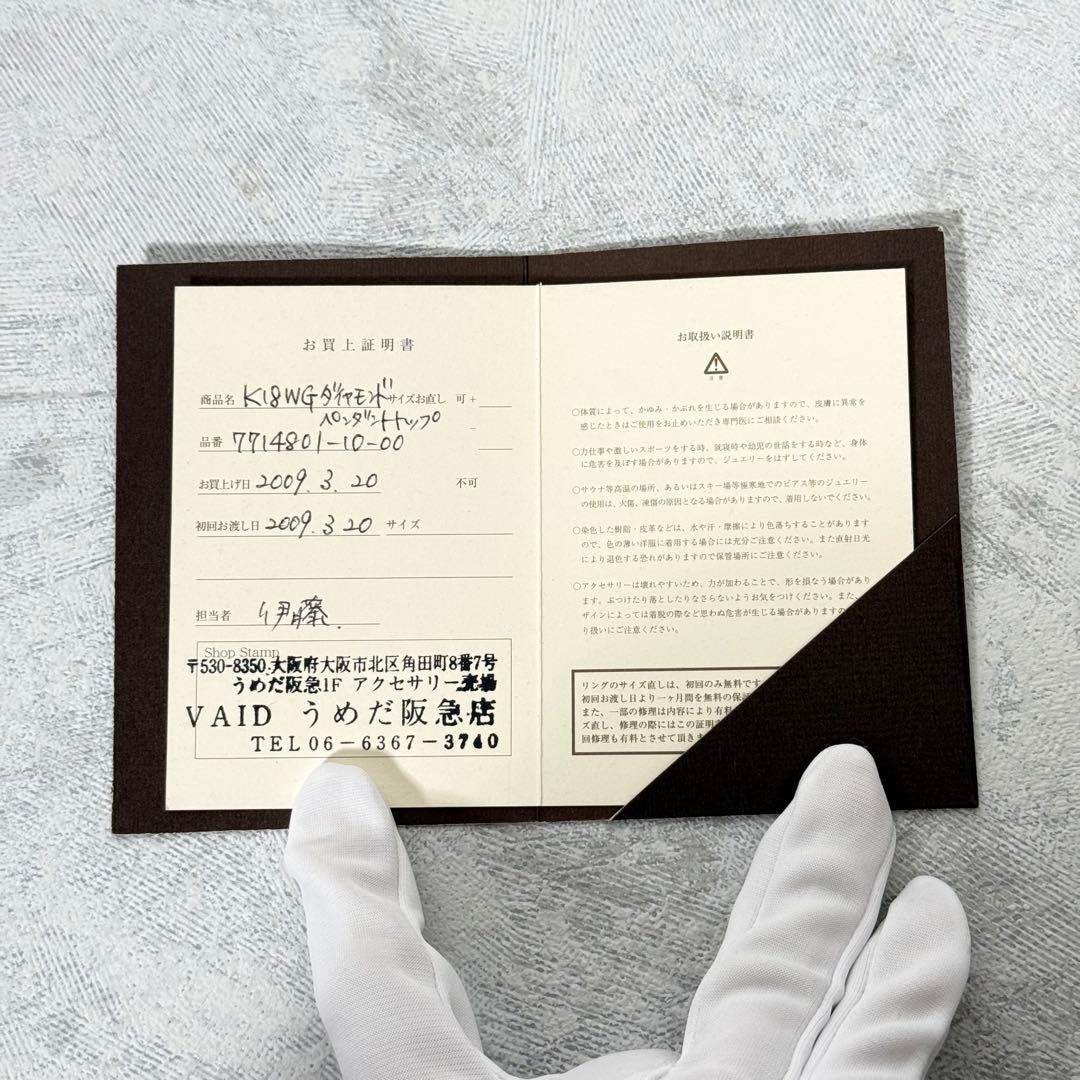 お買上証明書
商品名 K18WG ダイヤモンド サイズお直し 可 +
ペンダントトップ -
品番 7714801-10-00
お買上げ日 2009.3.20 不可
初回お渡し日 2009.3 20 サイズ
担当者 伊藤.
Shop Stamp
〒530-8350.大阪府大阪市北区角田町8番7号
うめだ阪急1F アクセサリー売場
VAID うめだ阪急店
TEL 06-6367-3740
お取扱い説明書
注意
○体質によって、かゆみ・かぶれを生じる場合がありますので、皮膚に異常を
感じたときはご使用をお止めいただき専門医にご相談ください。
○力仕事や激しいスポーツをする時、就寝時や幼児の世話をする時など、身体
に危害を及ぼす場合がありますので、ジュエリーをはずしてください。
○サウナ等高温の場所、あるいはスキー場等極寒地でのピアス等のジュエリー
の使用は、火傷、凍傷の原因となる場合がありますので、着用しないでください。
○染色した樹脂・皮革などは、水や汗・摩擦により色落ちすることがあります
ので、色の薄い洋服に着用する場合には充分ご注意ください。また直射日光
により退色する恐れがありますので保管場所にご注意ください。
○アクセサリーは壊れやすいため、力が加わることで、形を損なう場合があり
ます。ぶつけたり落としたりなさらないようお気をつけください。また、
ザインによっては着脱の際など思わぬ危害が生じる場合がありますの
り扱いにご注意ください。
リングのサイズ直しは、初回のみ無料です
初回お渡し日より一ヶ月間を無料の保証
また、一部の修理は内容により有料
ズ直し、修理の際にはこの証明
回修理も有料とさせて頂きま